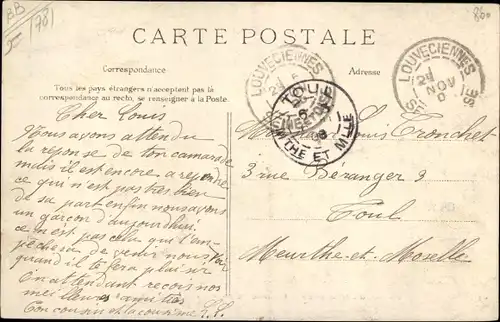 BB
(78)
860
CARTE POSTALE
Correspondance
Adresse
Tous les pays étrangers n'acceptent pas la
correspondance au recto, se renseigner à la Poste.
LOUVECIENNES
LOUVECIENNES
NOV
TOUL
MEURTHE ET MLLE
Cher Louis
Nous avons attendu
la réponse de ton camarade
mais il est encore a repondre
ce qui n'est pas très bien
de sa part enfin nous avons
un garçon d'aujourd'hui
ce n'est pas celui qui
de venir nous
quand il te fera plaisir
En attendant recois nos
meilleures amitiés
Ton cousin et ta cousine
Louis Tronchet
3 rue Béranger 3
Toul
Meurthe-et-Moselle